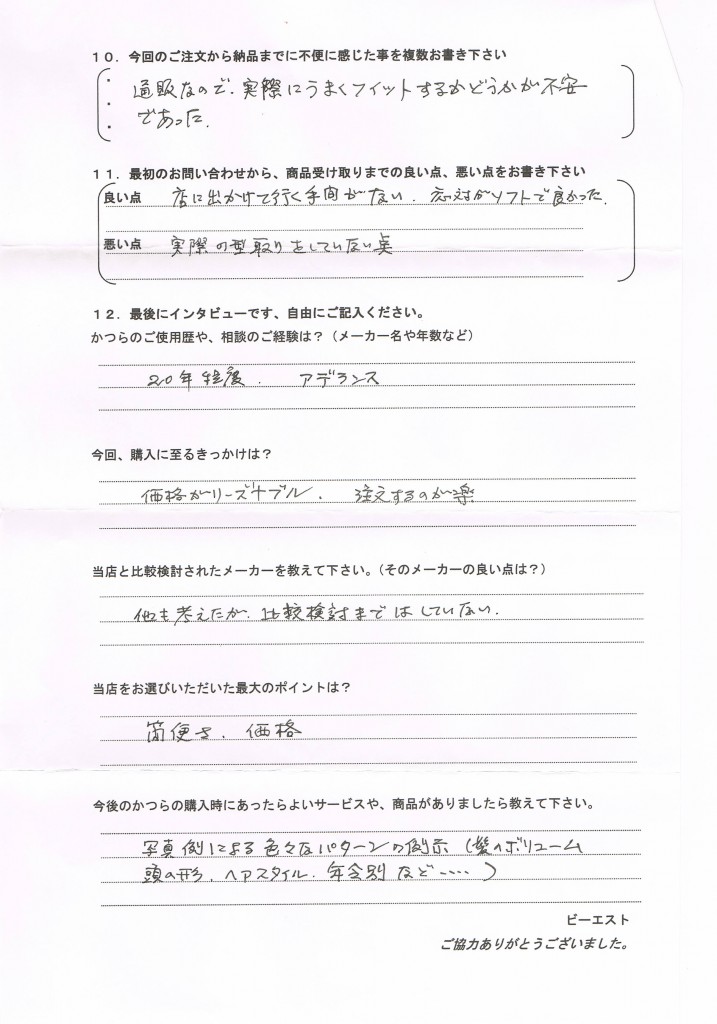 10．今回のご注文から納品までに不便に感じた事を複数お書き下さい
・通販なので、実際にうまくフィットするかどうかが不安
・であった。
・
11．最初のお問い合わせから、商品受け取りまでの良い点、悪い点をお書き下さい
良い点 店に出かけて行く手間がない．応対がソフトで良かった．
悪い点 実際の型取りをしていない点
12．最後にインタビューです、自由にご記入ください。
かつらのご使用歴や、相談のご経験は？（メーカー名や年数など）
20年程度． アデランス
今回、購入に至るきっかけは？
価格がリーズナブル． 注文するのが楽
当店と比較検討されたメーカーを教えて下さい。（そのメーカーの良い点は？）
他も考えたが、比較検討まではしていない．
当店をお選びいただいた最大のポイントは？
簡便さ．価格
今後のかつらの購入時にあったらよいサービスや、商品がありましたら教えて下さい。
写真例による色々なパターンの例示（髪のボリューム
頭の形．ヘアスタイル．年令別など‥‥）
ビーエスト
ご協力ありがとうございました。